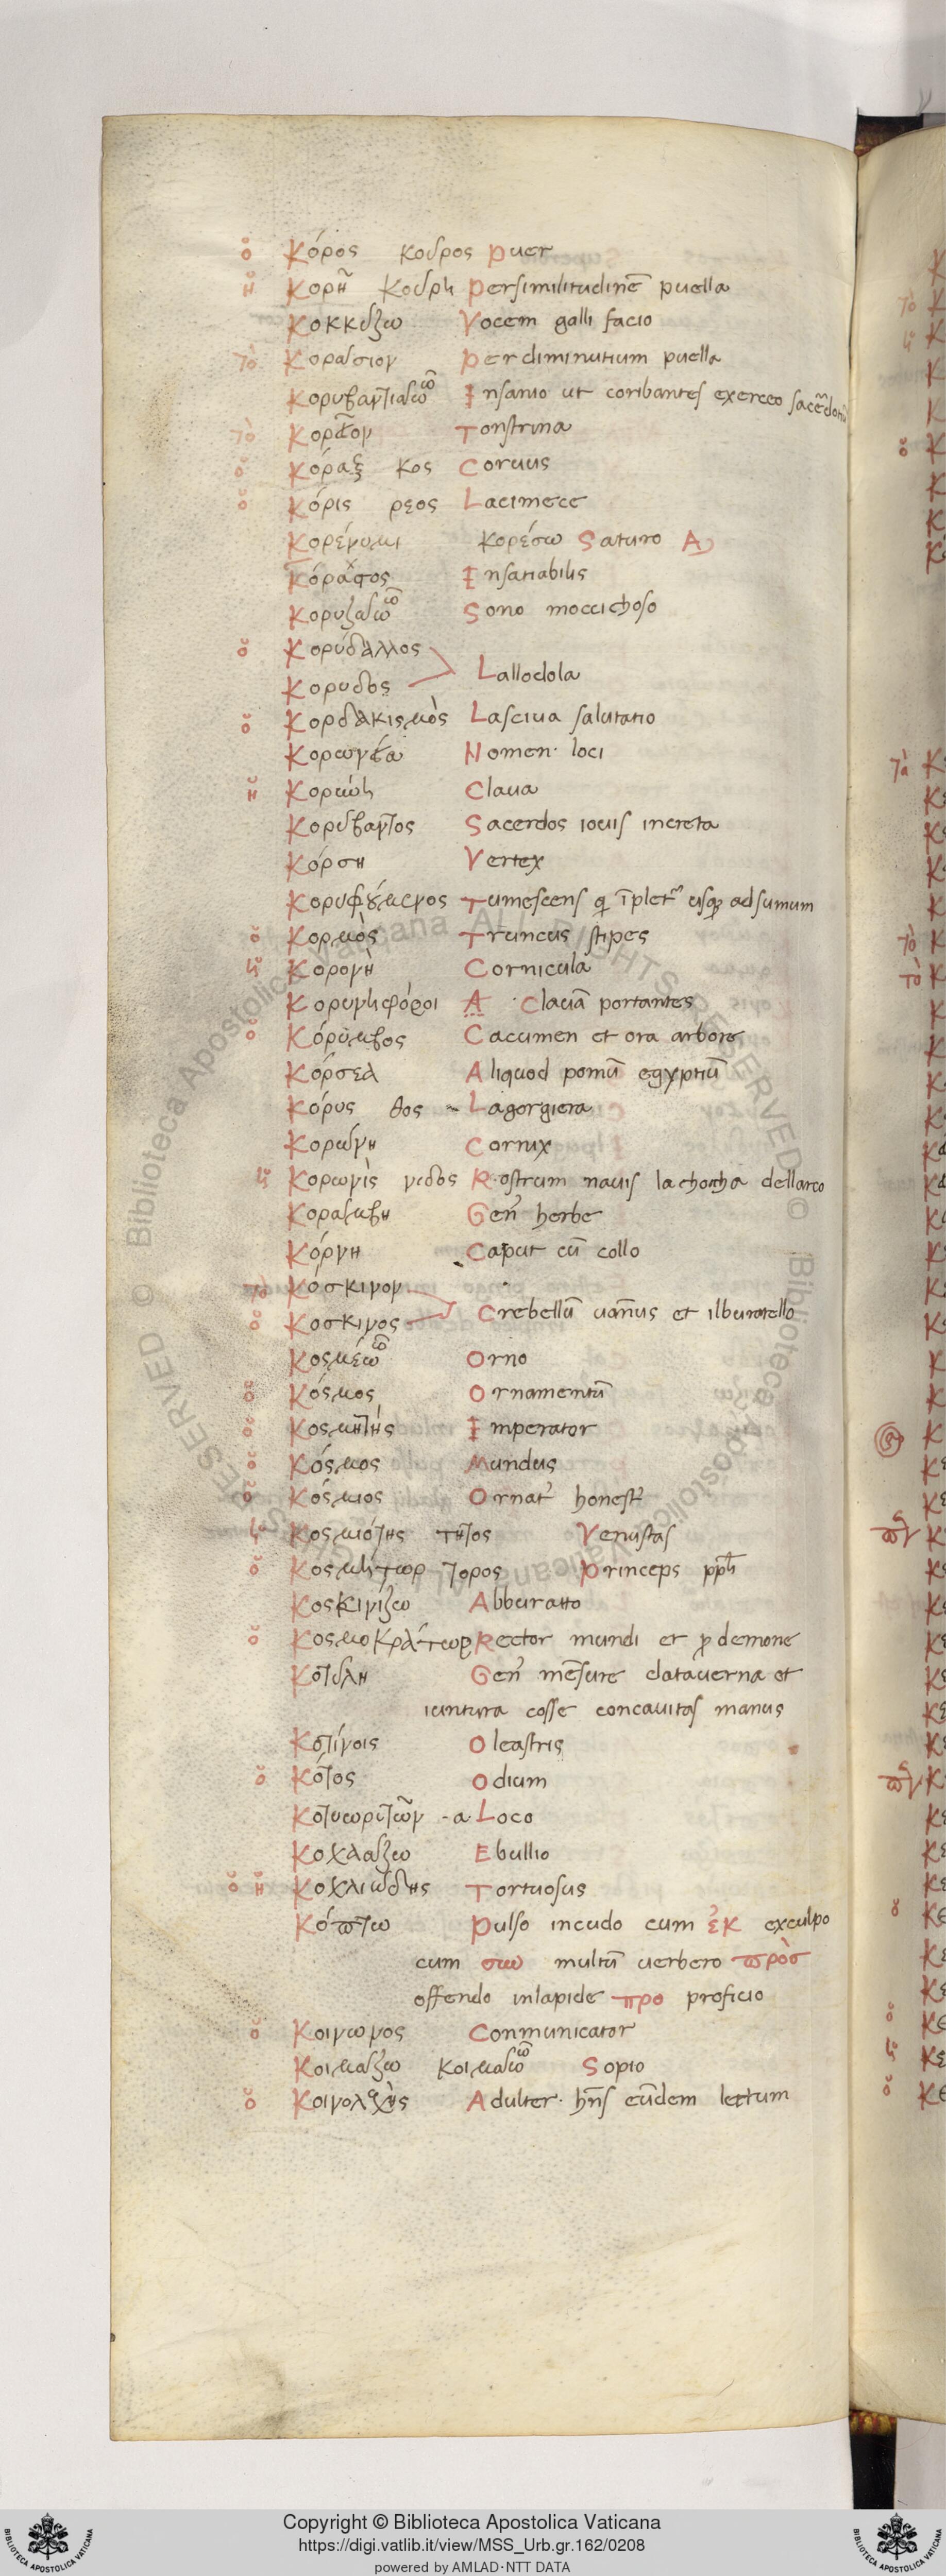 ὁ Κόρος κοῦρος Puer
ἡ Κορῆ κούρη Persimilitudinē puella
Κοκκύζω Vocem galli facio
τὸ Κοράσιον Per diminutium puella
Κορυβαντιάω ῶ Insanio ut coribantes exerceo sacerdotiū
τὸ Κορεῖον Tonstrina
ὁ Κόραξ κος Corvus
ὁ Κόρις ρεος Lacimece
Κορένυμι κορέσω Saturo A
Insatiabilis
Κορυζάω ῶ Sono moccichoso
ὁ Κορύδαλλος
Κορυδος Lallodola
ὁ Κορδακισμὸς Lasciva salutatio
Κορωνεία Nomen loci
ἡ Κορώνη Clava
Κορύβαντος Sacerdos iovis increta
Κόρση Vertex
Κορυφούμενος Tumescens qi īpletr usq; ad sumum
ὁ Κορμὸς Truncus stipes
ἡ Κορονὴ Cornicula
Κορυνηφόροι A Clavā portantes
ὁ Κόρυμβος Cacumen et ora arbore
Κόρσεα Aliquod pomū egyptiū
Κόρυς θος Lagorgiera
Κορώνη Cornix
ἡ Κορωνὶς νιδος Rostrum navis la chocha dellarco
Κοράμβη Gen' herbe
Κόρνη Caput cū collo
τὸ Κόσκινον
ὁ Κοσκινος Crebellū vānus et ilburatello
Κοσμέω ῶ Orno
ὁ Κόσμος Ornamentū
ὁ Κοσμητὴς Imperator
ὁ Κόσμος Mundus
ὁ Κόσμιος Ornat' honest'
ἡ Κοσμιότης τητος Venustas
ὁ Κοσμήτωρ τορος Princeps
Κοσκινίζω Abburatto
ὁ Κοσμοκράτωρ Rector mundi et p demone
Κοτύλη Gen' mēsure dataverna et
iuntura cosse concavitas manus
Κοτίνοις Oleastris
ὁ Κότος Odium
Κοτυωριτῶν - a Loco
Κοχλάζω Ebullio
ὁ ἡ Κοχλιώδης Tortuosus
Κόπτω Pulso incudo cum ἐκ exculpo
cum συν multū verbero πρὸσ
offendo inlapide προ proficio
ὁ Κοινωνος Conmunicator
Κοιμάζω κοιμάω ῶ Sopio
ὁ Κοινολεχὴς Adulter. hn̄s eūdem lettum
Copyright © Biblioteca Apostolica Vaticana
https://digi.vatlib.it/view/MSS_Urb.gr.162/0208
powered by AMLAD·NTT DATA